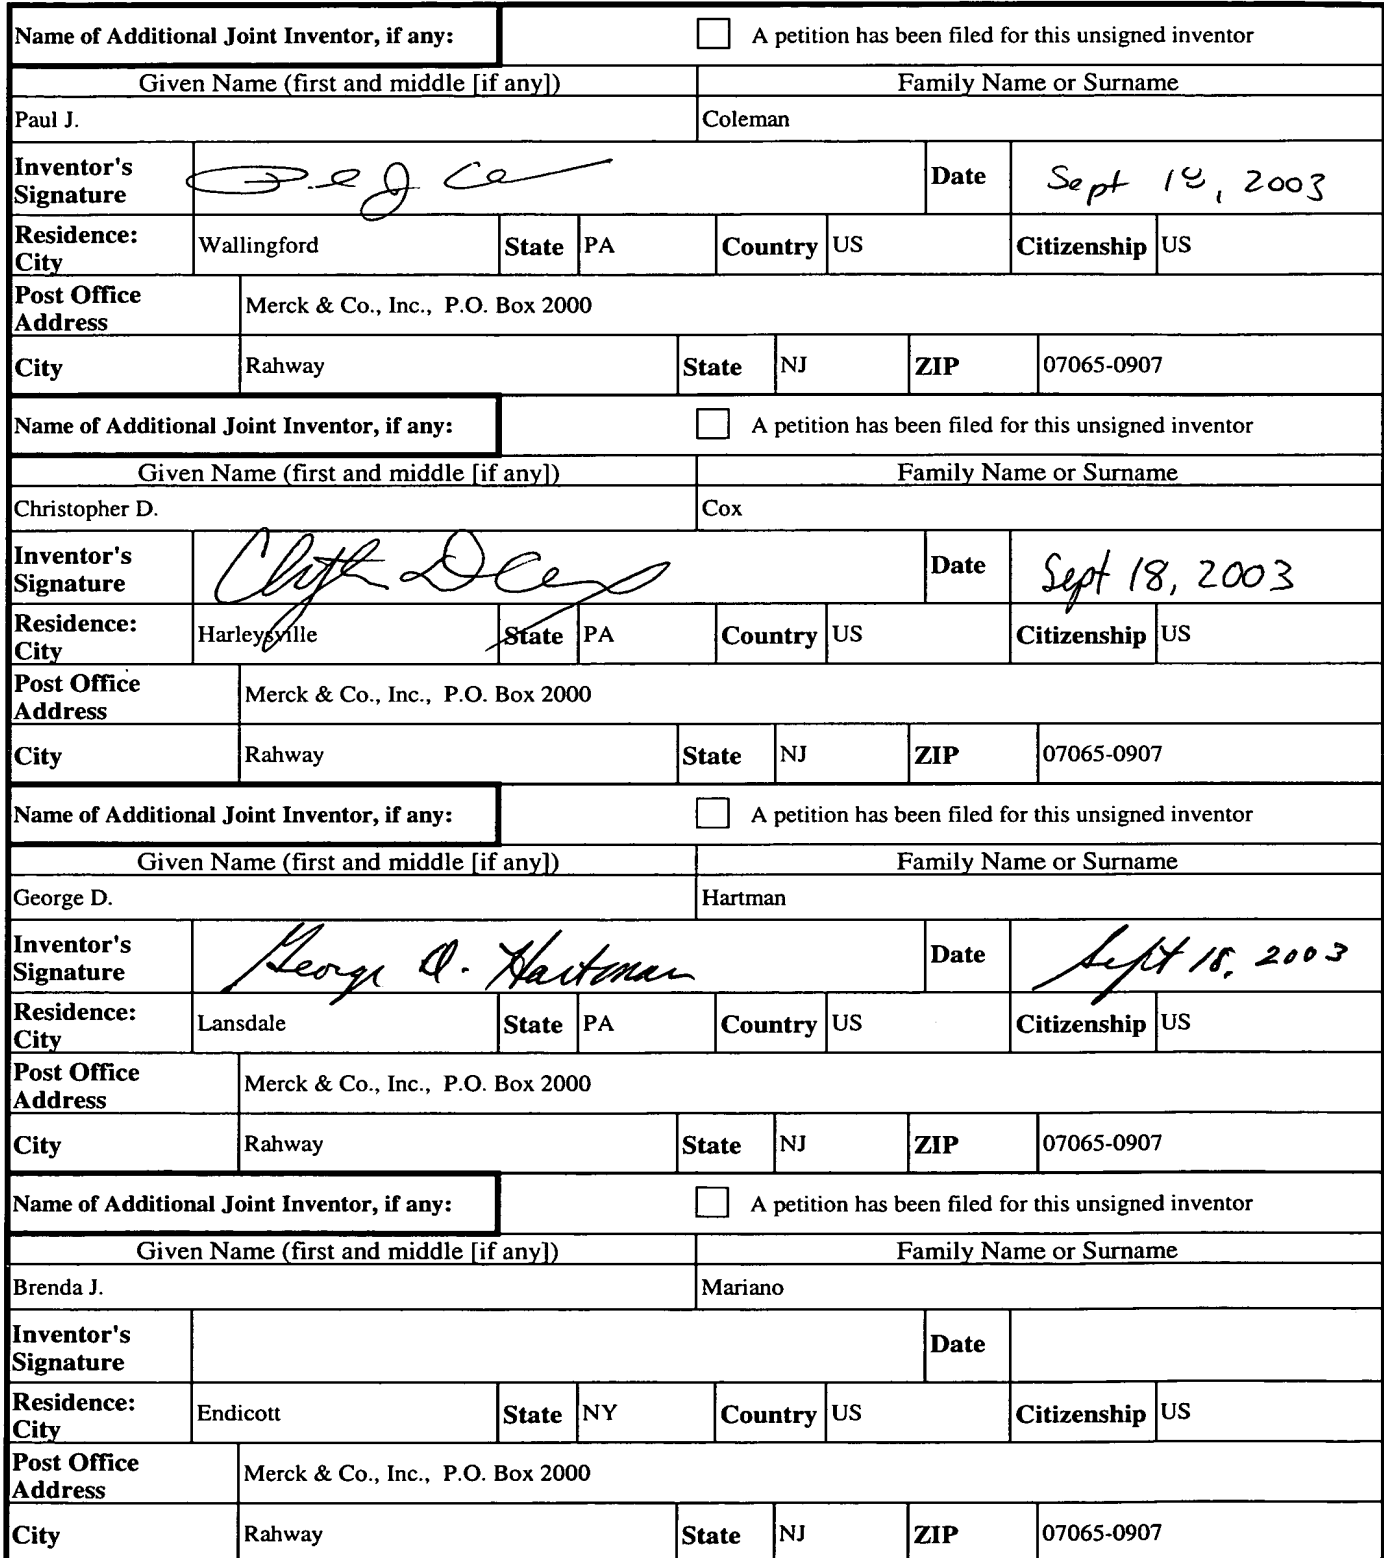 Name of Additional Joint Inventor, if any: A petition has been filed for this unsigned inventor
Given Name (first and middle [if any]) Family Name or Surname
Paul J. Coleman
Inventor's Signature Date Sept 18, 2003
Residence: City Wallingford State PA Country US Citizenship US
Post Office Address Merck & Co., Inc., P.O. Box 2000
City Rahway State NJ ZIP 07065-0907
Name of Additional Joint Inventor, if any: A petition has been filed for this unsigned inventor
Given Name (first and middle [if any]) Family Name or Surname
Christopher D. Cox
Inventor's Signature Date Sept 18, 2003
Residence: City Harleysville State PA Country US Citizenship US
Post Office Address Merck & Co., Inc., P.O. Box 2000
City Rahway State NJ ZIP 07065-0907
Name of Additional Joint Inventor, if any: A petition has been filed for this unsigned inventor
Given Name (first and middle [if any]) Family Name or Surname
George D. Hartman
Inventor's Signature George D. Hartman Date Sept 18, 2003
Residence: City Lansdale State PA Country US Citizenship US
Post Office Address Merck & Co., Inc., P.O. Box 2000
City Rahway State NJ ZIP 07065-0907
Name of Additional Joint Inventor, if any: A petition has been filed for this unsigned inventor
Given Name (first and middle [if any]) Family Name or Surname
Brenda J. Mariano
Inventor's Signature Date
Residence: City Endicott State NY Country US Citizenship US
Post Office Address Merck & Co., Inc., P.O. Box 2000
City Rahway State NJ ZIP 07065-0907